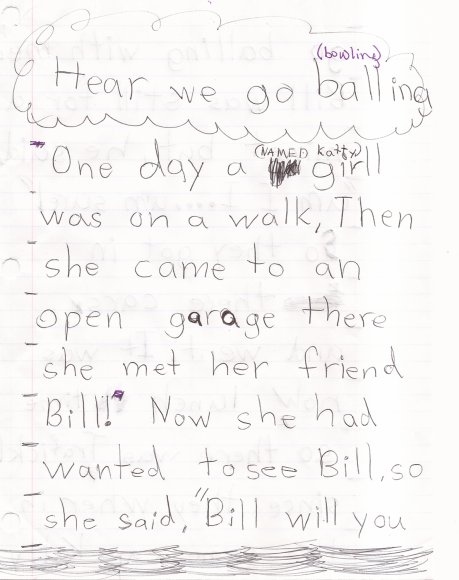 (bowling)
Hear we go balling
(NAMED Katty)
"One day a girll
was on a walk, Then
she came to an
open garage there
she met her friend
Bill!" Now she had
wanted to see Bill, so
she said, "Bill will you